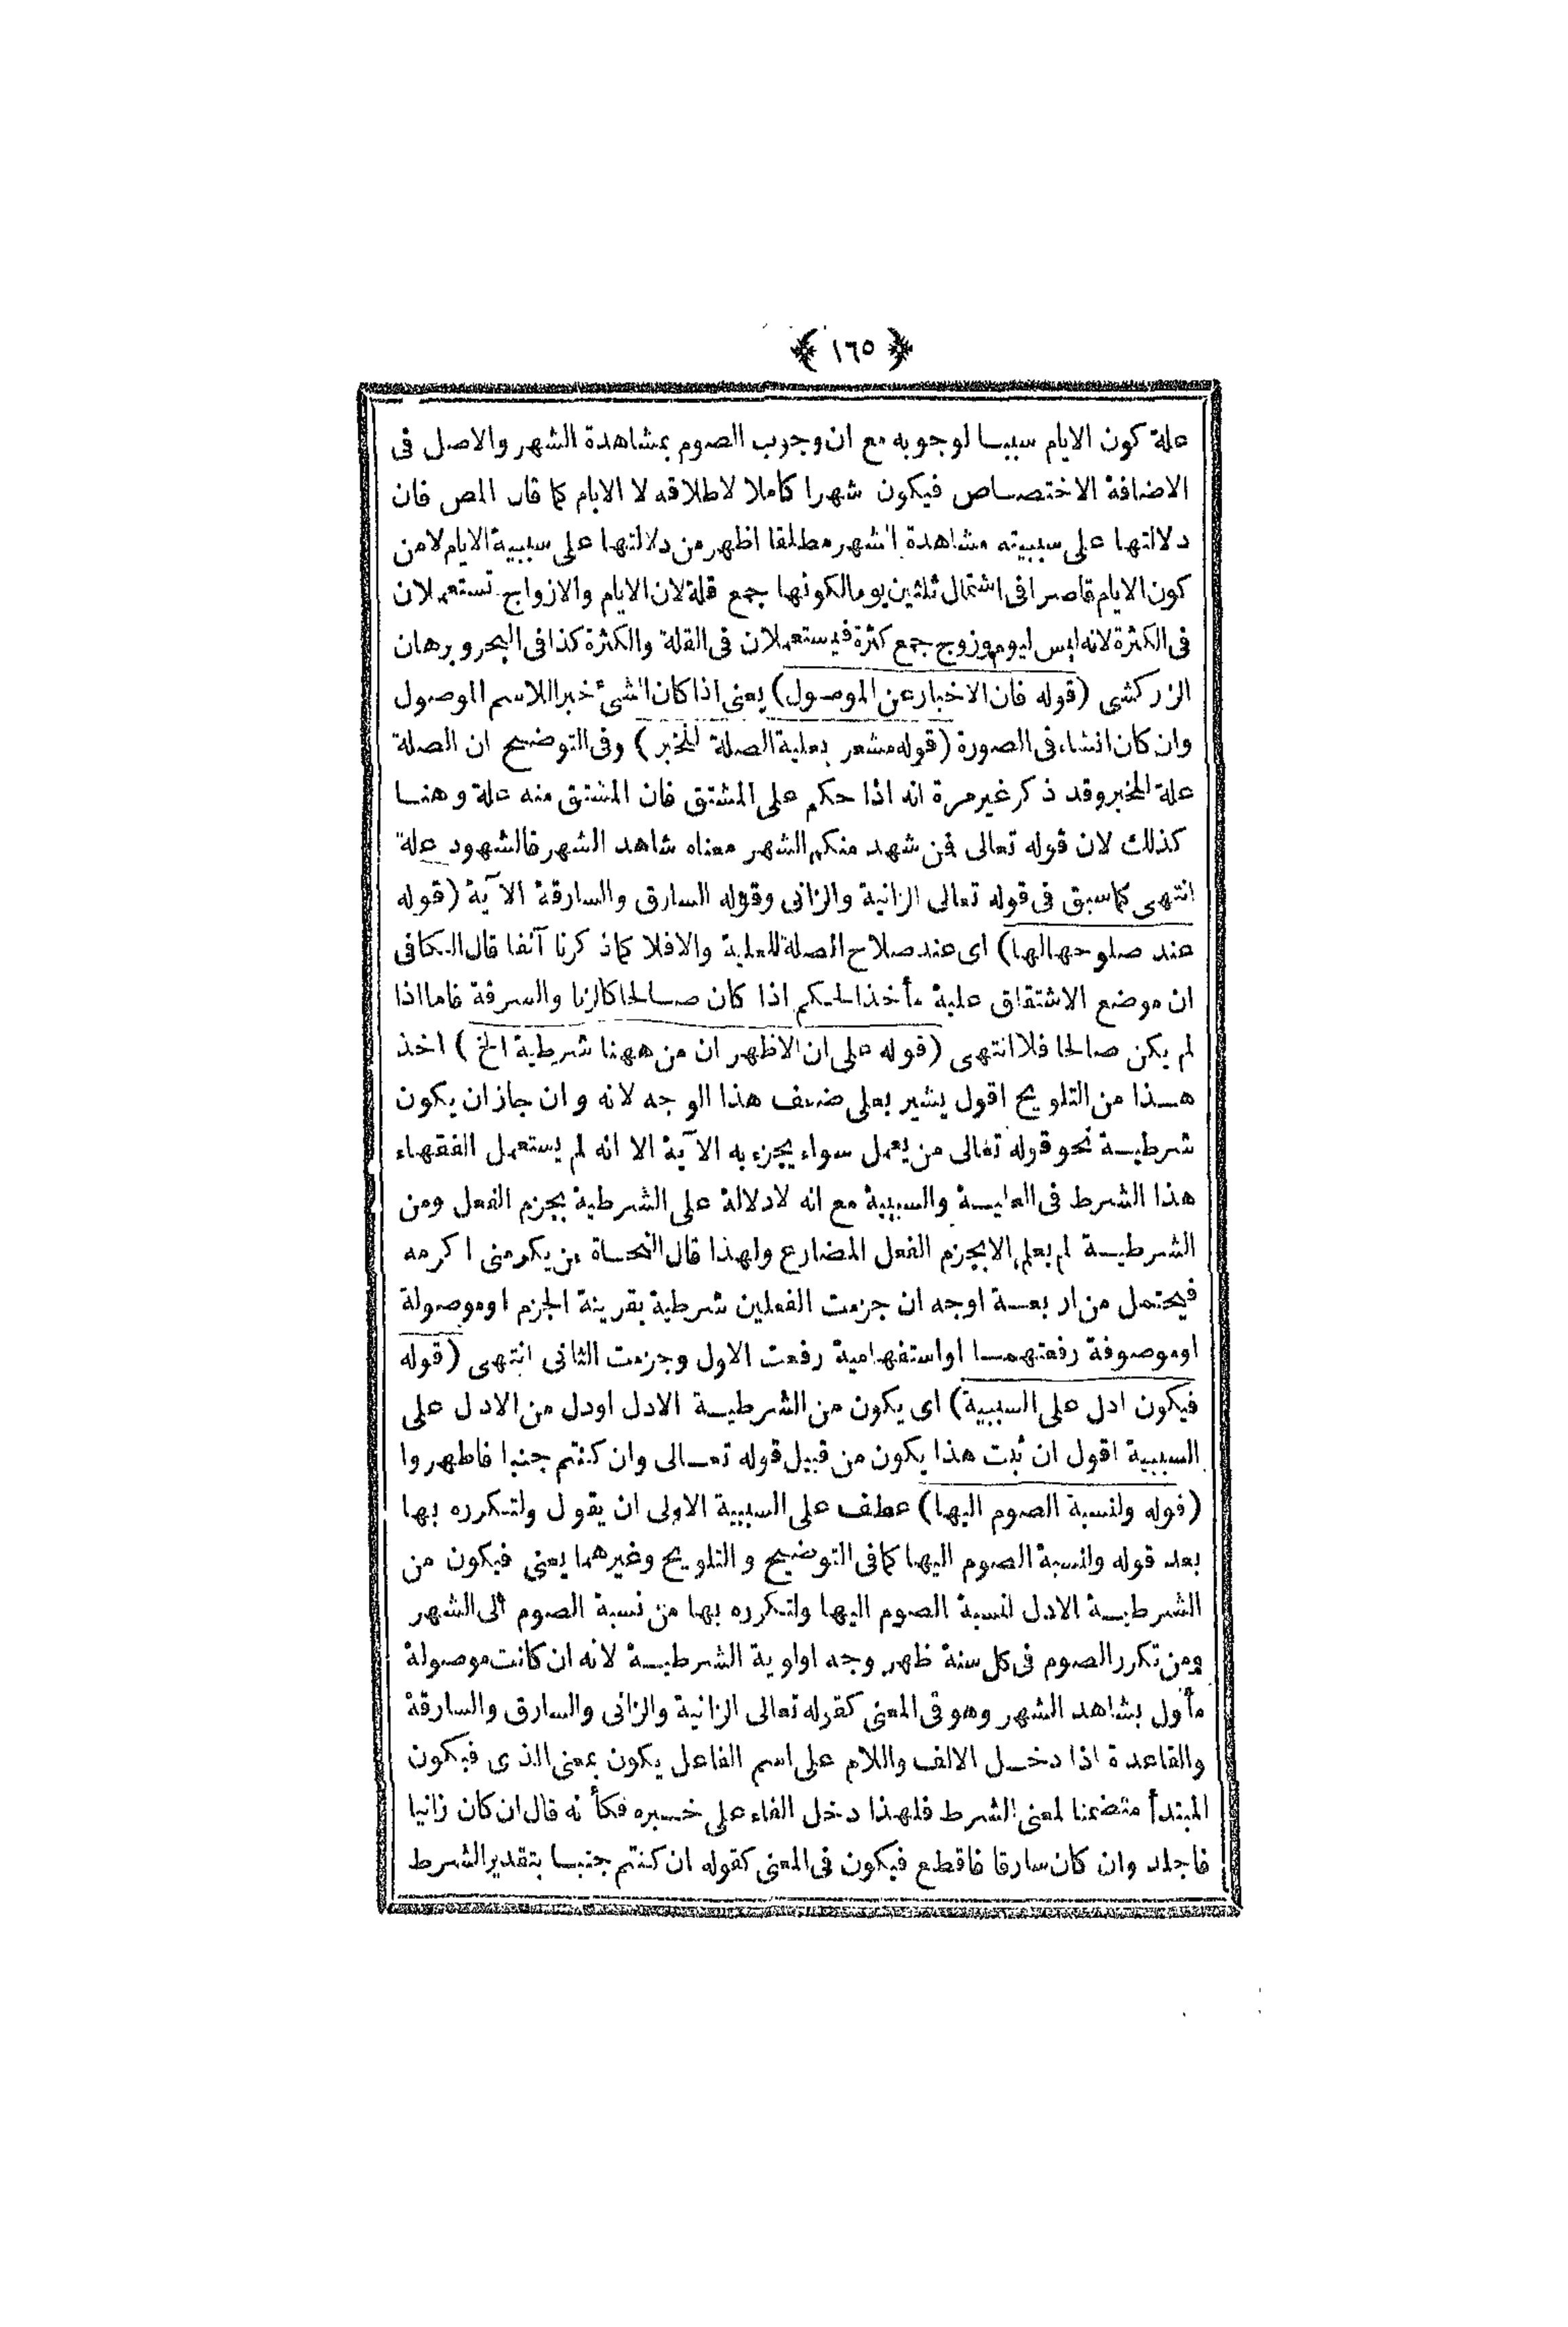 ﴿ ١٦٥ ﴾
علة كون الايام سببا لوجوبه مع ان وجوب الصوم بمشاهدة الشهر والاصل فى
الاضافة الاختصاص فيكون شهرا كاملا لاطلاقه لا الايام كما قال المص فان
دلالتها على سببيته مشاهدة الشهر مطلقا اظهر من دلالتها على سببية الايام لا من
كون الايام قاصرا فى اشتمال ثلثين يوما لكونها جمع قلة لان الايام والازواج تستعملان
فى الكثرة لانه ليس ليوم وزوج جمع كثرة فيستعملان فى القلة والكثرة كذا فى البحر وبرهان
الزركشى (قوله فان الاخبار عن الموصول) يعنى اذا كان الشئ خبرا للاسم الموصول
وان كان انشاء فى الصورة (قوله مشعر بعلية الصلة للخبر) وفى التوضيح ان الصلة
علة للخبر وقد ذكر غير مرة انه اذا حكم على المشتق فان المشتق منه علة وهنا
كذلك لان قوله تعالى فمن شهد منكم الشهر معناه شاهد الشهر فالشهود علة
انتهى كما سبق فى قوله تعالى الزانية والزانى وقوله السارق والسارقة الآية (قوله
عند صلوحها لها) اى عند صلاح الصلة للعلية والا فلا كما ذكرنا آنفا قال الكافى
ان موضع الاشتقاق علية مأخذ الحكم اذا كان صالحا كالزنا والسرقة فاما اذا
لم يكن صالحا فلا انتهى (قوله على ان الاظهر ان من ههنا شرطية الخ) اخذ
هذا من التلويح اقول يشير بعلى ضعف هذا الوجه لانه وان جاز ان يكون
شرطية نحو قوله تعالى من يعمل سواء يجزء به الآية الا انه لم يستعمل الفقهاء
هذا الشرط فى العلية والسببية مع انه لا دلالة على الشرطية بجزم الفعل ومن
الشرطية لم يعلم الا بجزم الفعل المضارع ولهذا قال النحاة من يكرمنى اكرمه
فيحتمل من اربعة اوجه ان جزمت الفعلين شرطية بقرينة الجزم او موصولة
او موصوفة رفعتهما او استفهامية رفعت الاول وجزمت الثانى انتهى (قوله
فيكون ادل على السببية) اى يكون من الشرطية الادل اودل من الادل على
السببية اقول ان ثبت هذا يكون من قبيل قوله تعالى وان كنتم جنبا فاطهروا
(قوله ولنسبة الصوم اليها) عطف على السببية الاولى ان يقول ولتكرره بها
بعد قوله ولنسبة الصوم اليها كما فى التوضيح والتلويح وغيرهما يعنى فيكون من
الشرطية الادل لنسبة الصوم اليها ولتكرره بها من نسبة الصوم الى الشهر
ومن تكرر الصوم فى كل سنة ظهر وجه اولوية الشرطية لانه ان كانت موصولة
مأول بشاهد الشهر وهو فى المعنى كقوله تعالى الزانية والزانى والسارق والسارقة
والقاعدة اذا دخل الالف واللام على اسم الفاعل يكون بمعنى الذى فيكون
المبتدأ متضمنا لمعنى الشرط فلهذا دخل الفاء على خبره فكأنه قال ان كان زانيا
فاجلد وان كان سارقا فاقطع فيكون فى المعنى كقوله ان كنتم جنبا بتقدير الشرط